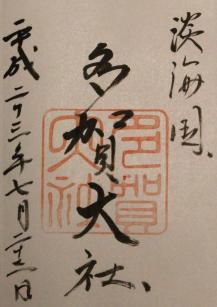 淡海国
多賀大社
平成二三年七月日
多賀
大社